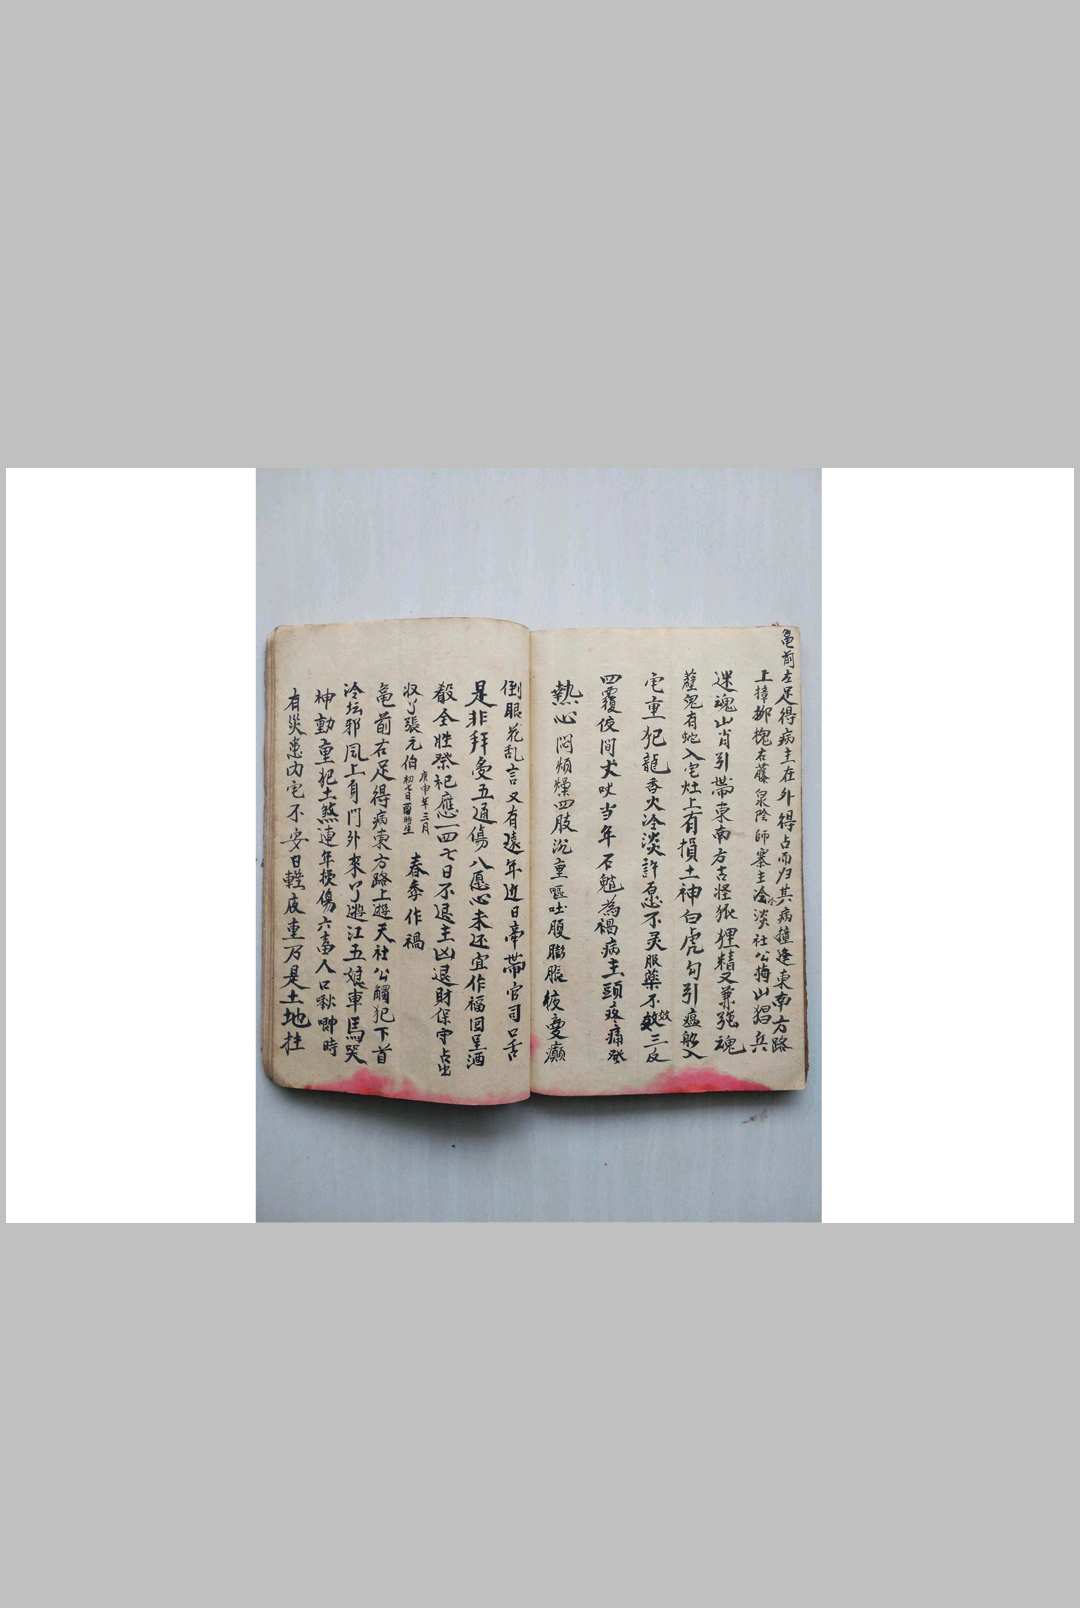 龜前左足得病主在外得占而归其病撞逢東南方路
上撞柳槐右藤泉陰師寨主冷淡社公梅山猖兵
迷魂山肖引帶東南方古怪狐狸精又兼強魂
蛇入宅灶上有損土神白虎勾引瘟船入
宅重犯龍香火冷淡許愿不灵服藥不效三反
四覆夜间犬吠当年石魈為禍病主頭疼痛發
熱心悶煩燥四肢沉重嘔吐腹膨脹疲憂癲
倒眼花乱言又有遠年近日牽帶官司口舌
是非拜曼五通傷八愿心未还宜作福回呈酒
殽全姓祭祀應一四七日不退主凶退財保守占出
収了張元伯庚申年三月初七日酉時生 春季作禍
龜前右足得病東方路上逰天社公觸犯下首
冷坛邪風上身门外來了逰江五娘車馬哭
神動重犯土煞連年损傷六畜人口秋唧時
有災患内宅不安日輕夜重乃是土地拄